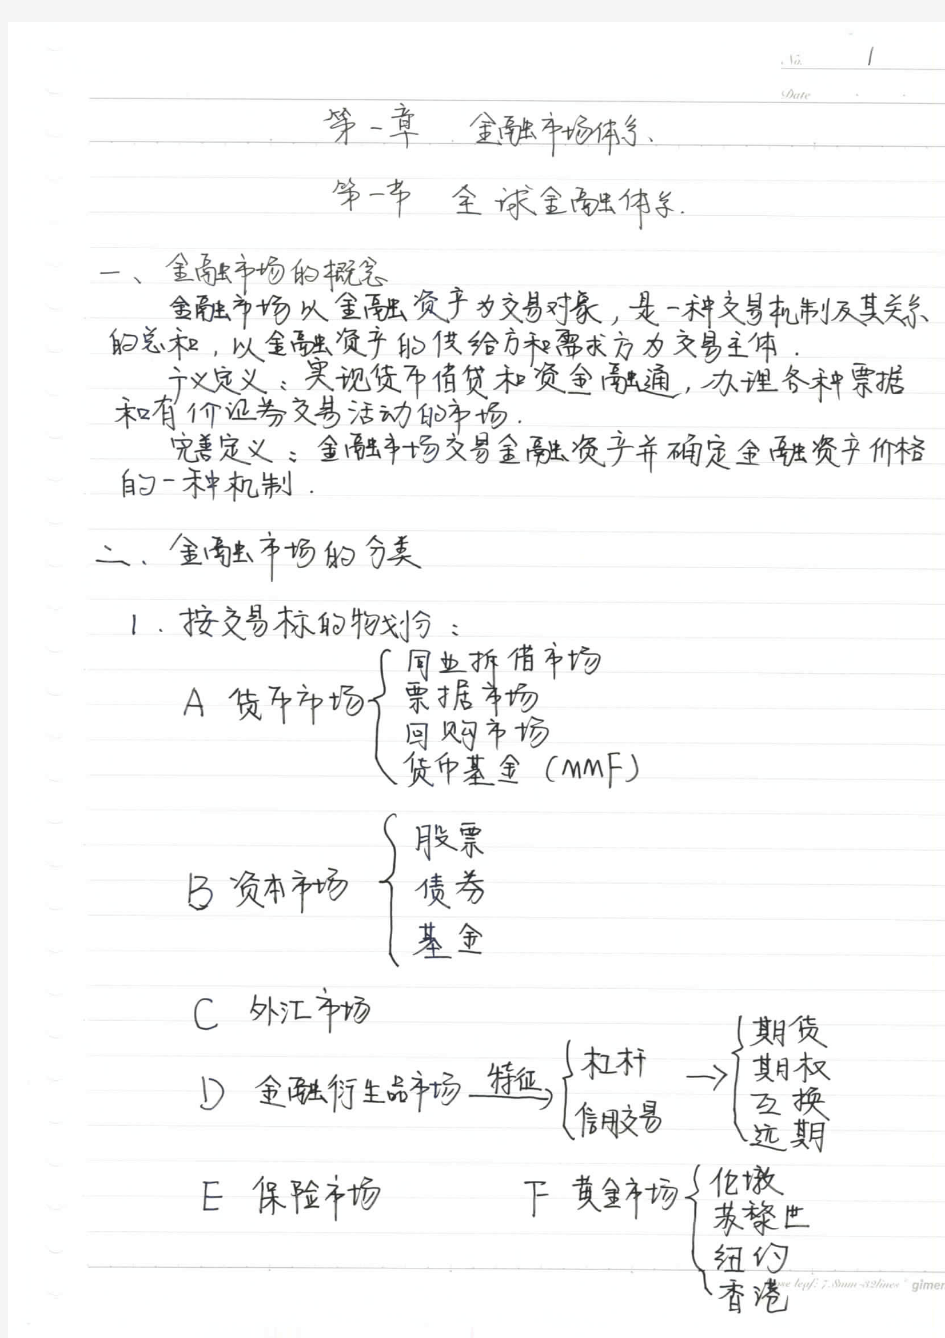 No. 1
Date
第一章 金融市场体系.
第一节 全球金融体系.
一、金融市场的概念
金融市场以金融资产为交易对象，是一种交易机制及其关系
的总和，以金融资产的供给方和需求方为交易主体.
广义定义：实现货币借贷和资金融通，办理各种票据
和有价证券交易活动的市场.
完善定义：金融市场交易金融资产并确定金融资产价格
的一种机制.
二、金融市场的分类
1. 按交易标的物划分：
A 货币市场
同业拆借市场
票据市场
回购市场
货币基金（MMF）
B 资本市场
股票
债券
基金
C 外汇市场
D 金融衍生品市场 特征
杠杆
信用交易
期货
期权
互换
远期
E 保险市场
F 黄金市场
伦敦
苏黎世
纽约
香港